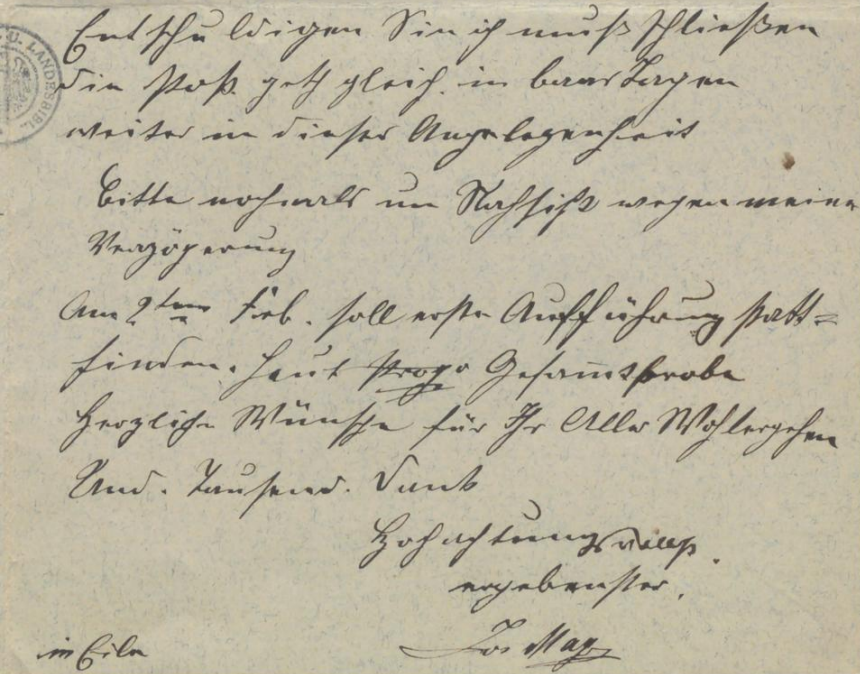 Entschuldigen Sie ich muß schließen
die Post geth gleich. in baar Tagen
weiter in dieser Angelegenheit
Bitte nochmals um Nachsicht wegen meiner
Verzögerung
Am 2ten Feb. soll erste Aufführung statt=
finden. Heut Gesammtprobe
Herzliche Wünsche für Ihr Aller Wohlergehen
Und. Tausend. Dank
Hochachtungsvollst
ergebenster.
Jos May
in Eile
U. LANDESBIBL.